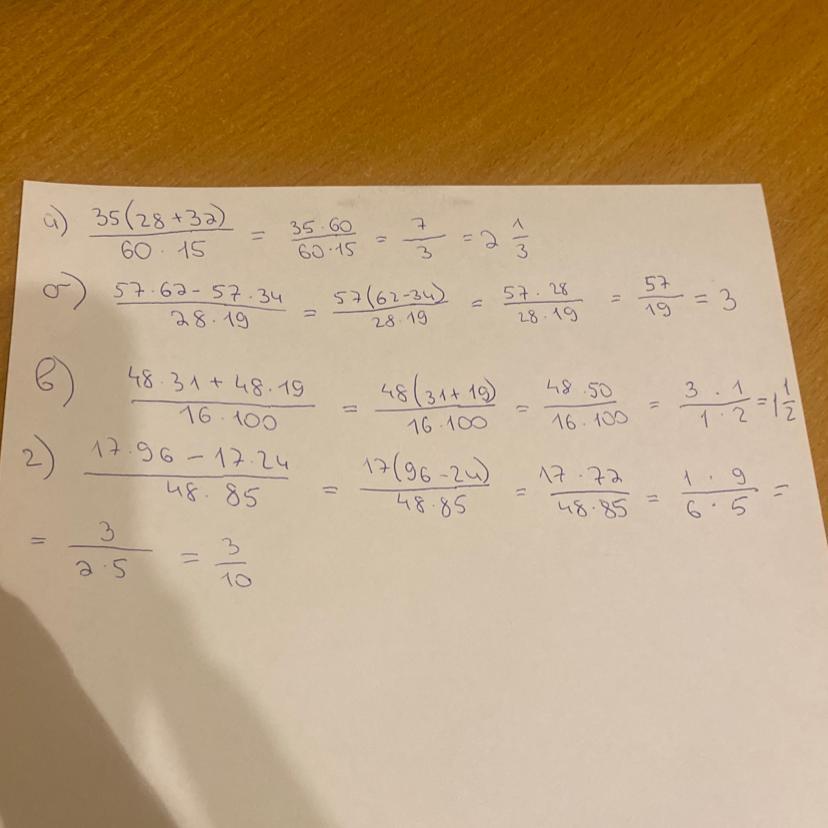 а) (35(28+32))/(60·15) = (35·60)/(60·15) = 7/3 = 2 1/3
б) (57·62-57·34)/(28·19) = (57(62-34))/(28·19) = (57·28)/(28·19) = 57/19 = 3
в) (48·31+48·19)/(16·100) = (48(31+19))/(16·100) = (48·50)/(16·100) = (3·1)/(1·2) = 1 1/2
г) (17·96-17·24)/(48·85) = (17(96-24))/(48·85) = (17·72)/(48·85) = (1·9)/(6·5) =
= 3/(2·5) = 3/10